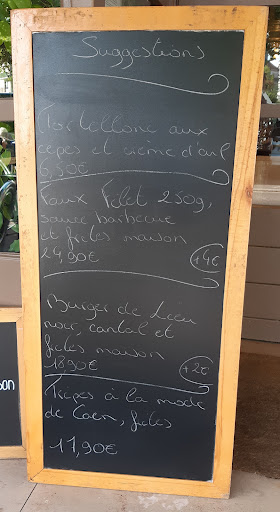 Suggestions
Tortellone aux
cepes et crème d'ail
6,50€
Faux Filet 250g,
sauce barbecue
et frites maison
24,90€
+4€
Burger de Lieu
noir, cantal et
frites maison
18,90€
+2€
Tripes à la mode
de Caen, frites
17,90€